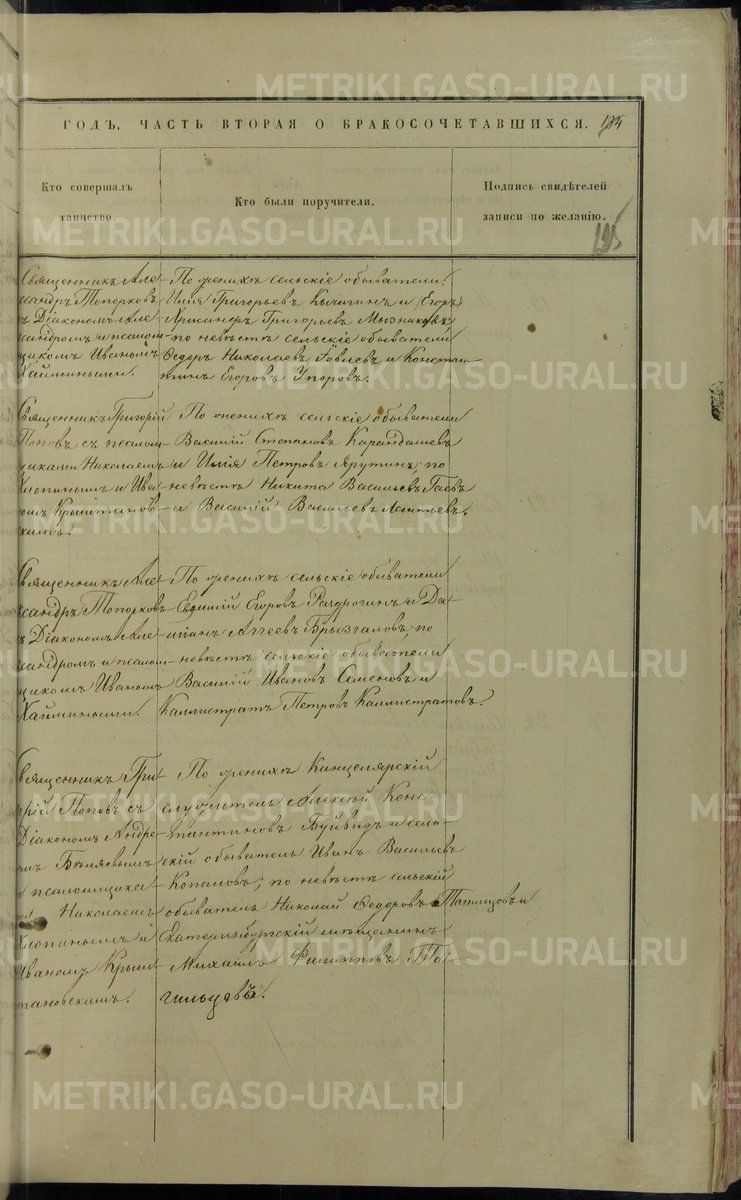 METRIKI.GASO-URAL.RU
ГОДЪ. ЧАСТЬ ВТОРАЯ О БРАКОСОЧЕТАВШИХСЯ.
Кто совершалъ
таинство.
Кто были поручители.
Подпись свидѣтелей
записи по желанію.
195
Священникъ Але-
ксандръ Топорковъ
съ Діакономъ Але-
ксандромъ и псалом-
щикомъ Иваномъ
Хаймиными.
По женихѣ сельскіе обыватели
Илія Григорьевъ Кычигинъ и (Егоръ)
Григорьевъ
по невѣстѣ сельскіе обыватели
Федоръ Николаевъ и Констан-
тинъ Егоровъ Упоровъ.
Священникъ Григорій
Поповъ съ псалом-
щиками Николаемъ
Хлопинымъ и Ива-
номъ Крыштанов-
скимъ.
По женихѣ сельскіе обыватели
Василій Степановъ Карандашевъ
и Илія Петровъ Ярутинъ; по
невѣстѣ Никита Васильевъ Гаевъ
и Василій Васильевъ Леонтьевъ.
Священникъ Але-
ксандръ Топорковъ
съ Діакономъ Але-
ксандромъ и псалом-
щикомъ Иваномъ
Хаймиными.
По женихѣ сельскіе обыватели
Егоровъ и Да-
міанъ Аггеевъ Брызгаловъ; по
невѣстѣ сельскіе обыватели
Василій Ивановъ Семеновъ и
Каллистратъ Петровъ Каллистратовъ.
Священникъ Гри-
горій Поповъ съ
Діакономъ Андре-
емъ Бѣляевымъ
и псаломщика-
ми Николаемъ
Хлопинымъ и
Иваномъ Крыш-
тановскимъ.
По женихѣ Канцелярскій
служитель Алексѣй Конс-
тантиновъ Буйвидъ и сель-
скій обыватель Иванъ Васильевъ
Копаловъ; по невѣстѣ сельскій
обыватель Николай Федоровъ Татищовъ и
Екатеринбургскій мѣщанинъ
Михаилъ Филипповъ Та-
гильцевъ.